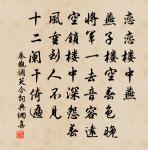 戀戀樓中燕
燕子樓空春色晚
將軍一去音容遠
空鎖樓中深怨春
風重到人不見
十二闌干倚遍
秦觀調笑令詞典網